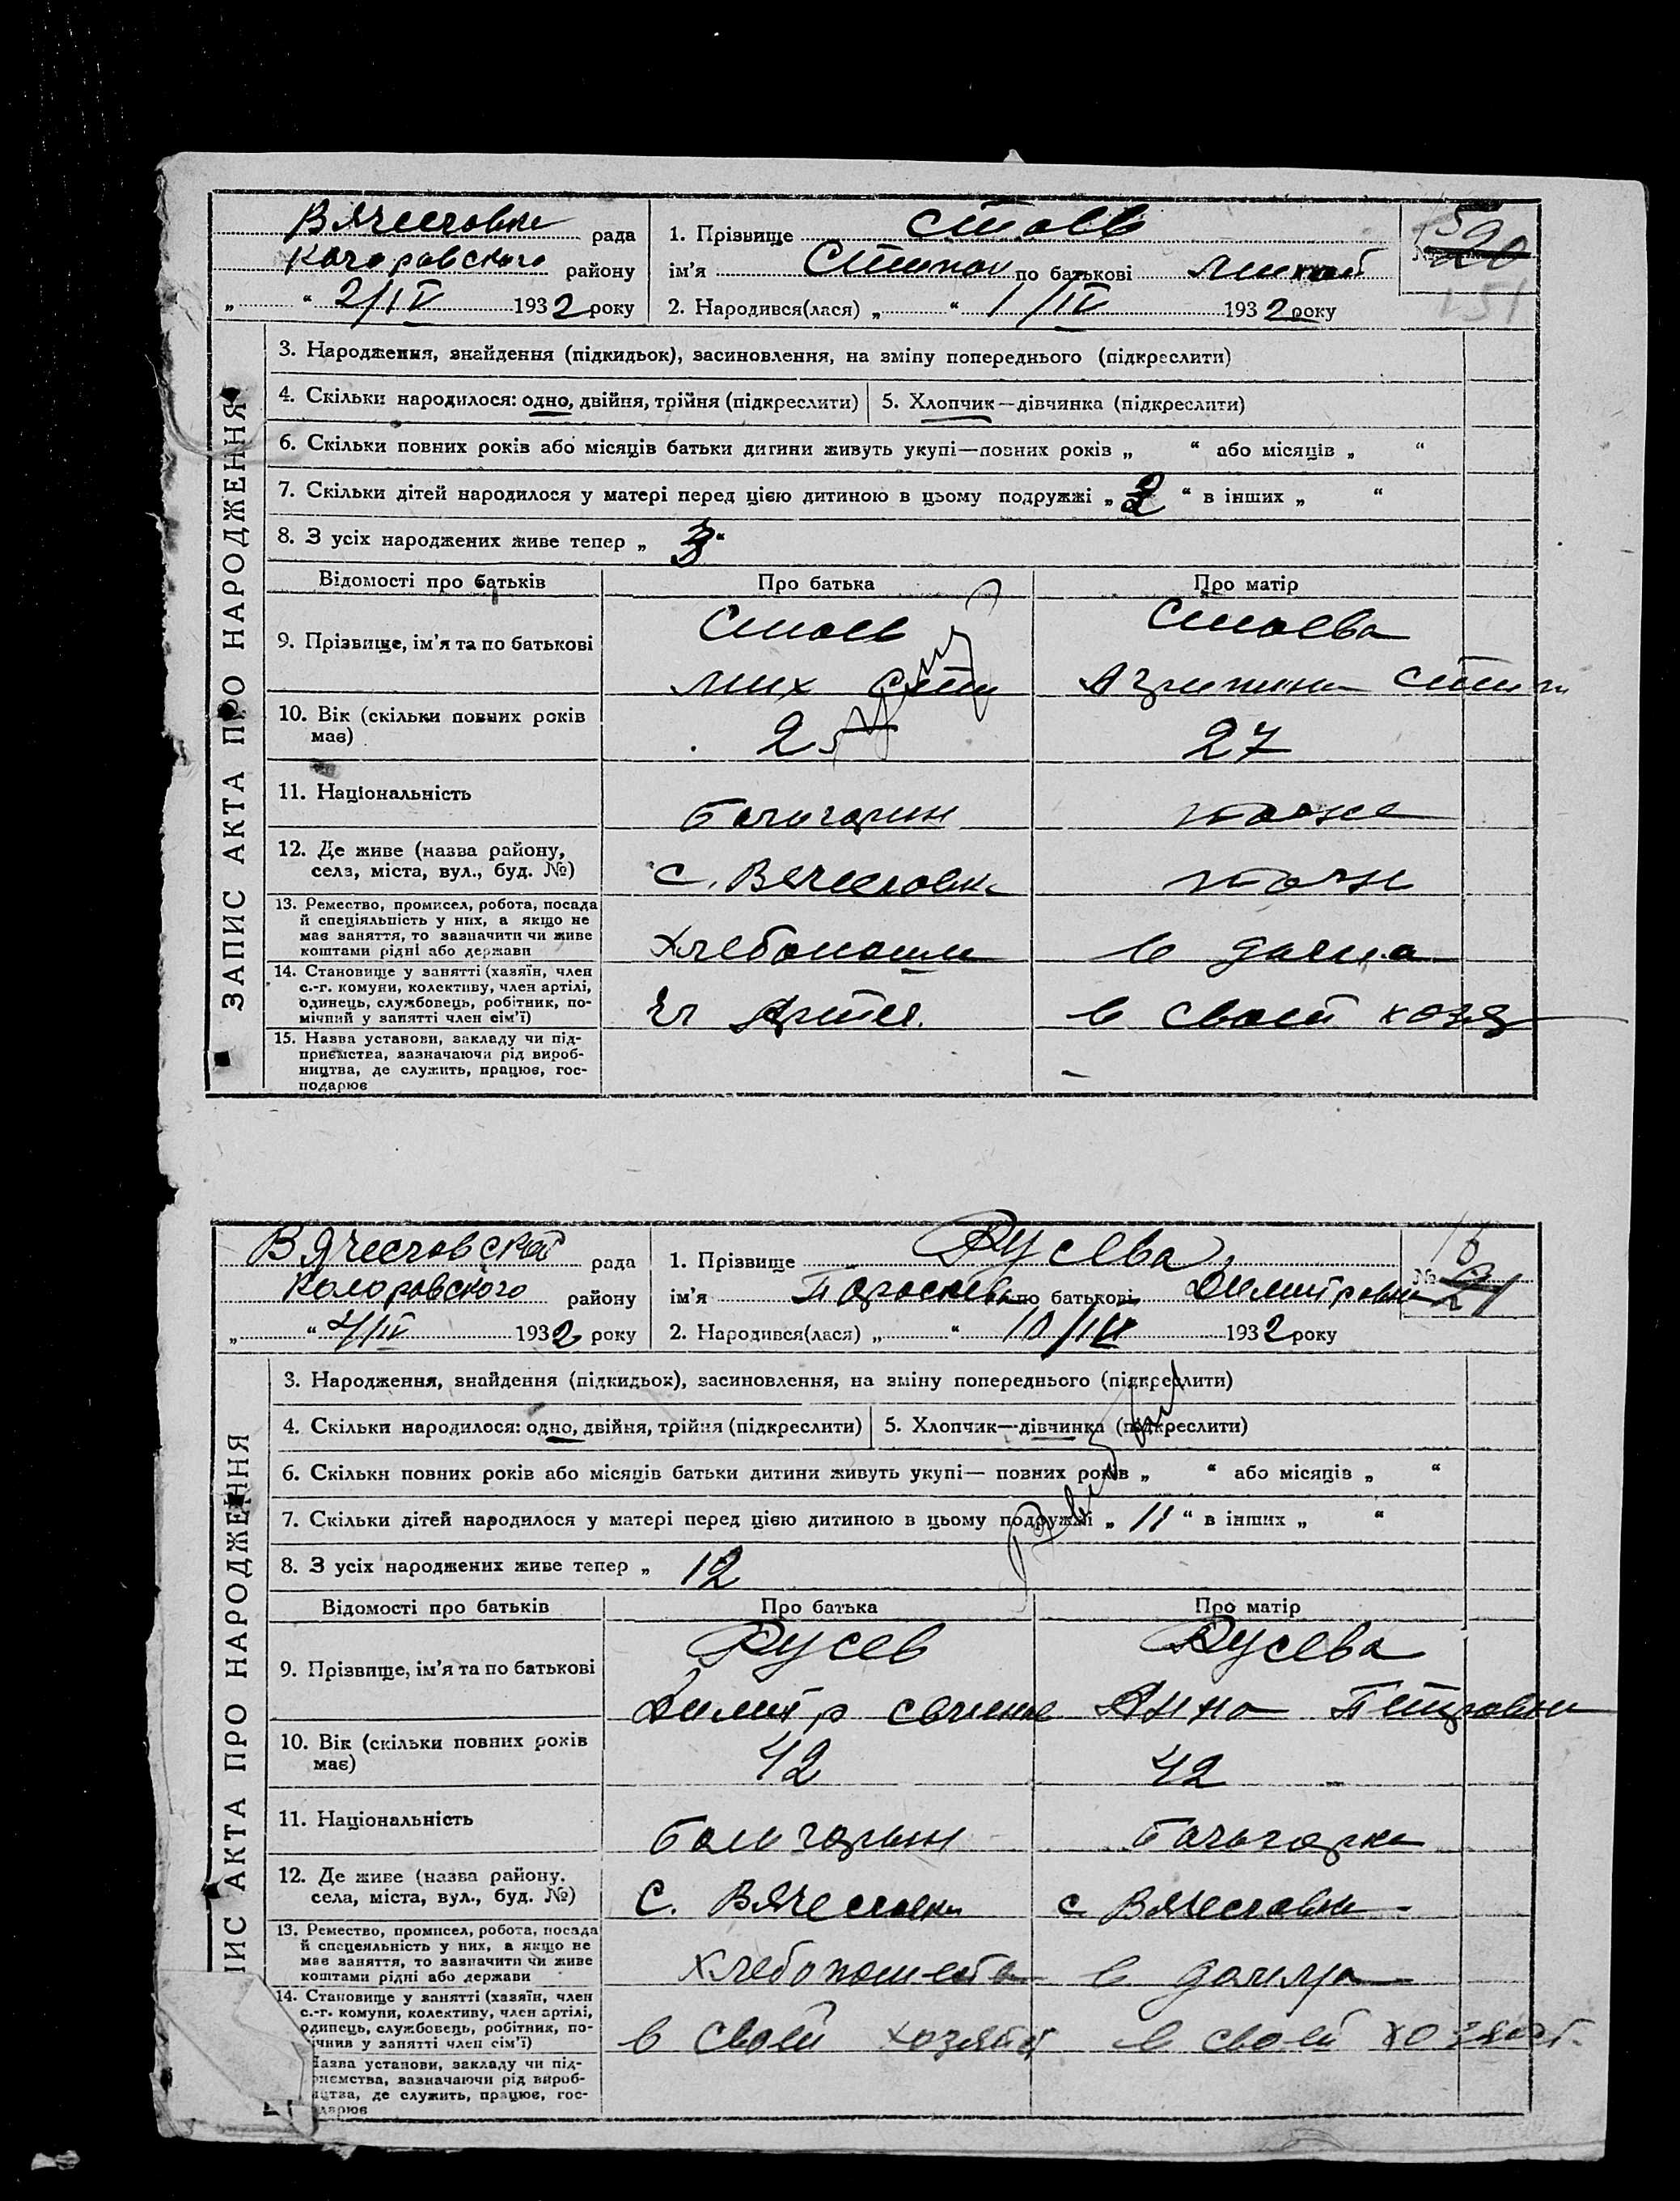 Вячесловка рада
Коларовского району
„ “ 2/IV 1932 року
1. Прізвище Стоев
ім'я Степан по батькові Михай
2. Народився(лася) „ “ 1/IV 1932 року
№ 20
151
ЗАПИС АКТА ПРО НАРОДЖЕННЯ
3. Народження, знайдення (підкидьок), засиновлення, на зміну попереднього (підкреслити)
4. Скільки народилося: одно, двійня, трійня (підкреслити) 5. Хлопчик—дівчинка (підкреслити)
6. Скільки повних років або місяців батьки дитини живуть укупі—повних років „ “ або місяців „ “
7. Скільки дітей народилося у матері перед цією дитиною в цьому подружжі „ 2 “ в інших „ “
8. З усіх народжених живе тепер „ 3 “
Відомості про батьків Про батька Про матір
9. Прізвище, ім'я та по батькові
Стоев Стоева
мих сте
10. Вік (скільки повних років має)
25 27
11. Національність
болгарин тоже
12. Де живе (назва району, села, міста, вул., буд. №)
с. Вячесловка тоже
13. Ремество, промисел, робота, посада
й спеціяльність у них, а якщо не
має заняття, то зазначити чи живе
коштами рідні або держави
Хлебопаш в дома
14. Становище у занятті (хазяїн, член
с.-г. комуни, колективу, член артілі,
одинець, службовець, робітник, по-
мічний у занятті член сім'ї)
чл Артел. в своей хозя
15. Назва установи, закладу чи під-
приємства, зазначаючи рід вироб-
ництва, де служить, працює, гос-
подарює
Вячесловской рада
Коларовского району
„ “ 4/IV 1932 року
1. Прізвище Русева
ім'я Пораскева по батькові Димитровна
2. Народився(лася) „ “ 1932 року
№ 21
ИС АКТА ПРО НАРОДЖЕННЯ
3. Народження, знайдення (підкидьок), засиновлення, на зміну попереднього (підкреслити)
4. Скільки народилося: одно, двійня, трійня (підкреслити) 5. Хлопчик—дівчинка (підкреслити)
6. Скільки повних років або місяців батьки дитини живуть укупі— повних років „ “ або місяців „ “
7. Скільки дітей народилося у матері перед цією дитиною в цьому подружжі „ 11 “ в інших „ “
8. З усіх народжених живе тепер „ 12
Відомості про батьків Про батька Про матір
9. Прізвище, ім'я та по батькові
Русев Русева
Димитр Анна Петровна
10. Вік (скільки повних років має)
42 42
11. Національність
болгарин болгарка
12. Де живе (назва району. села, міста, вул., буд. №)
с. Вячесловки с. Вячесловка
13. Ремество, промисел, робота, посада
й спецеяльність у них, а якщо не
має заняття, то зазначити чи живе
коштами рідні або держави
Хлебопашество в дома
14. Становище у занятті (хазяїн, член
с.-г. комуни, колективу, член артілі,
одинець, службовець, робітник, по-
ічния у занятті член сім'ї)
в своей хозяйст в своей хозяйст.
Назва установи, закладу чи під-
риємства, зазначаючи рід вироб-
ицтва, де служить, працює, гос-
дарює